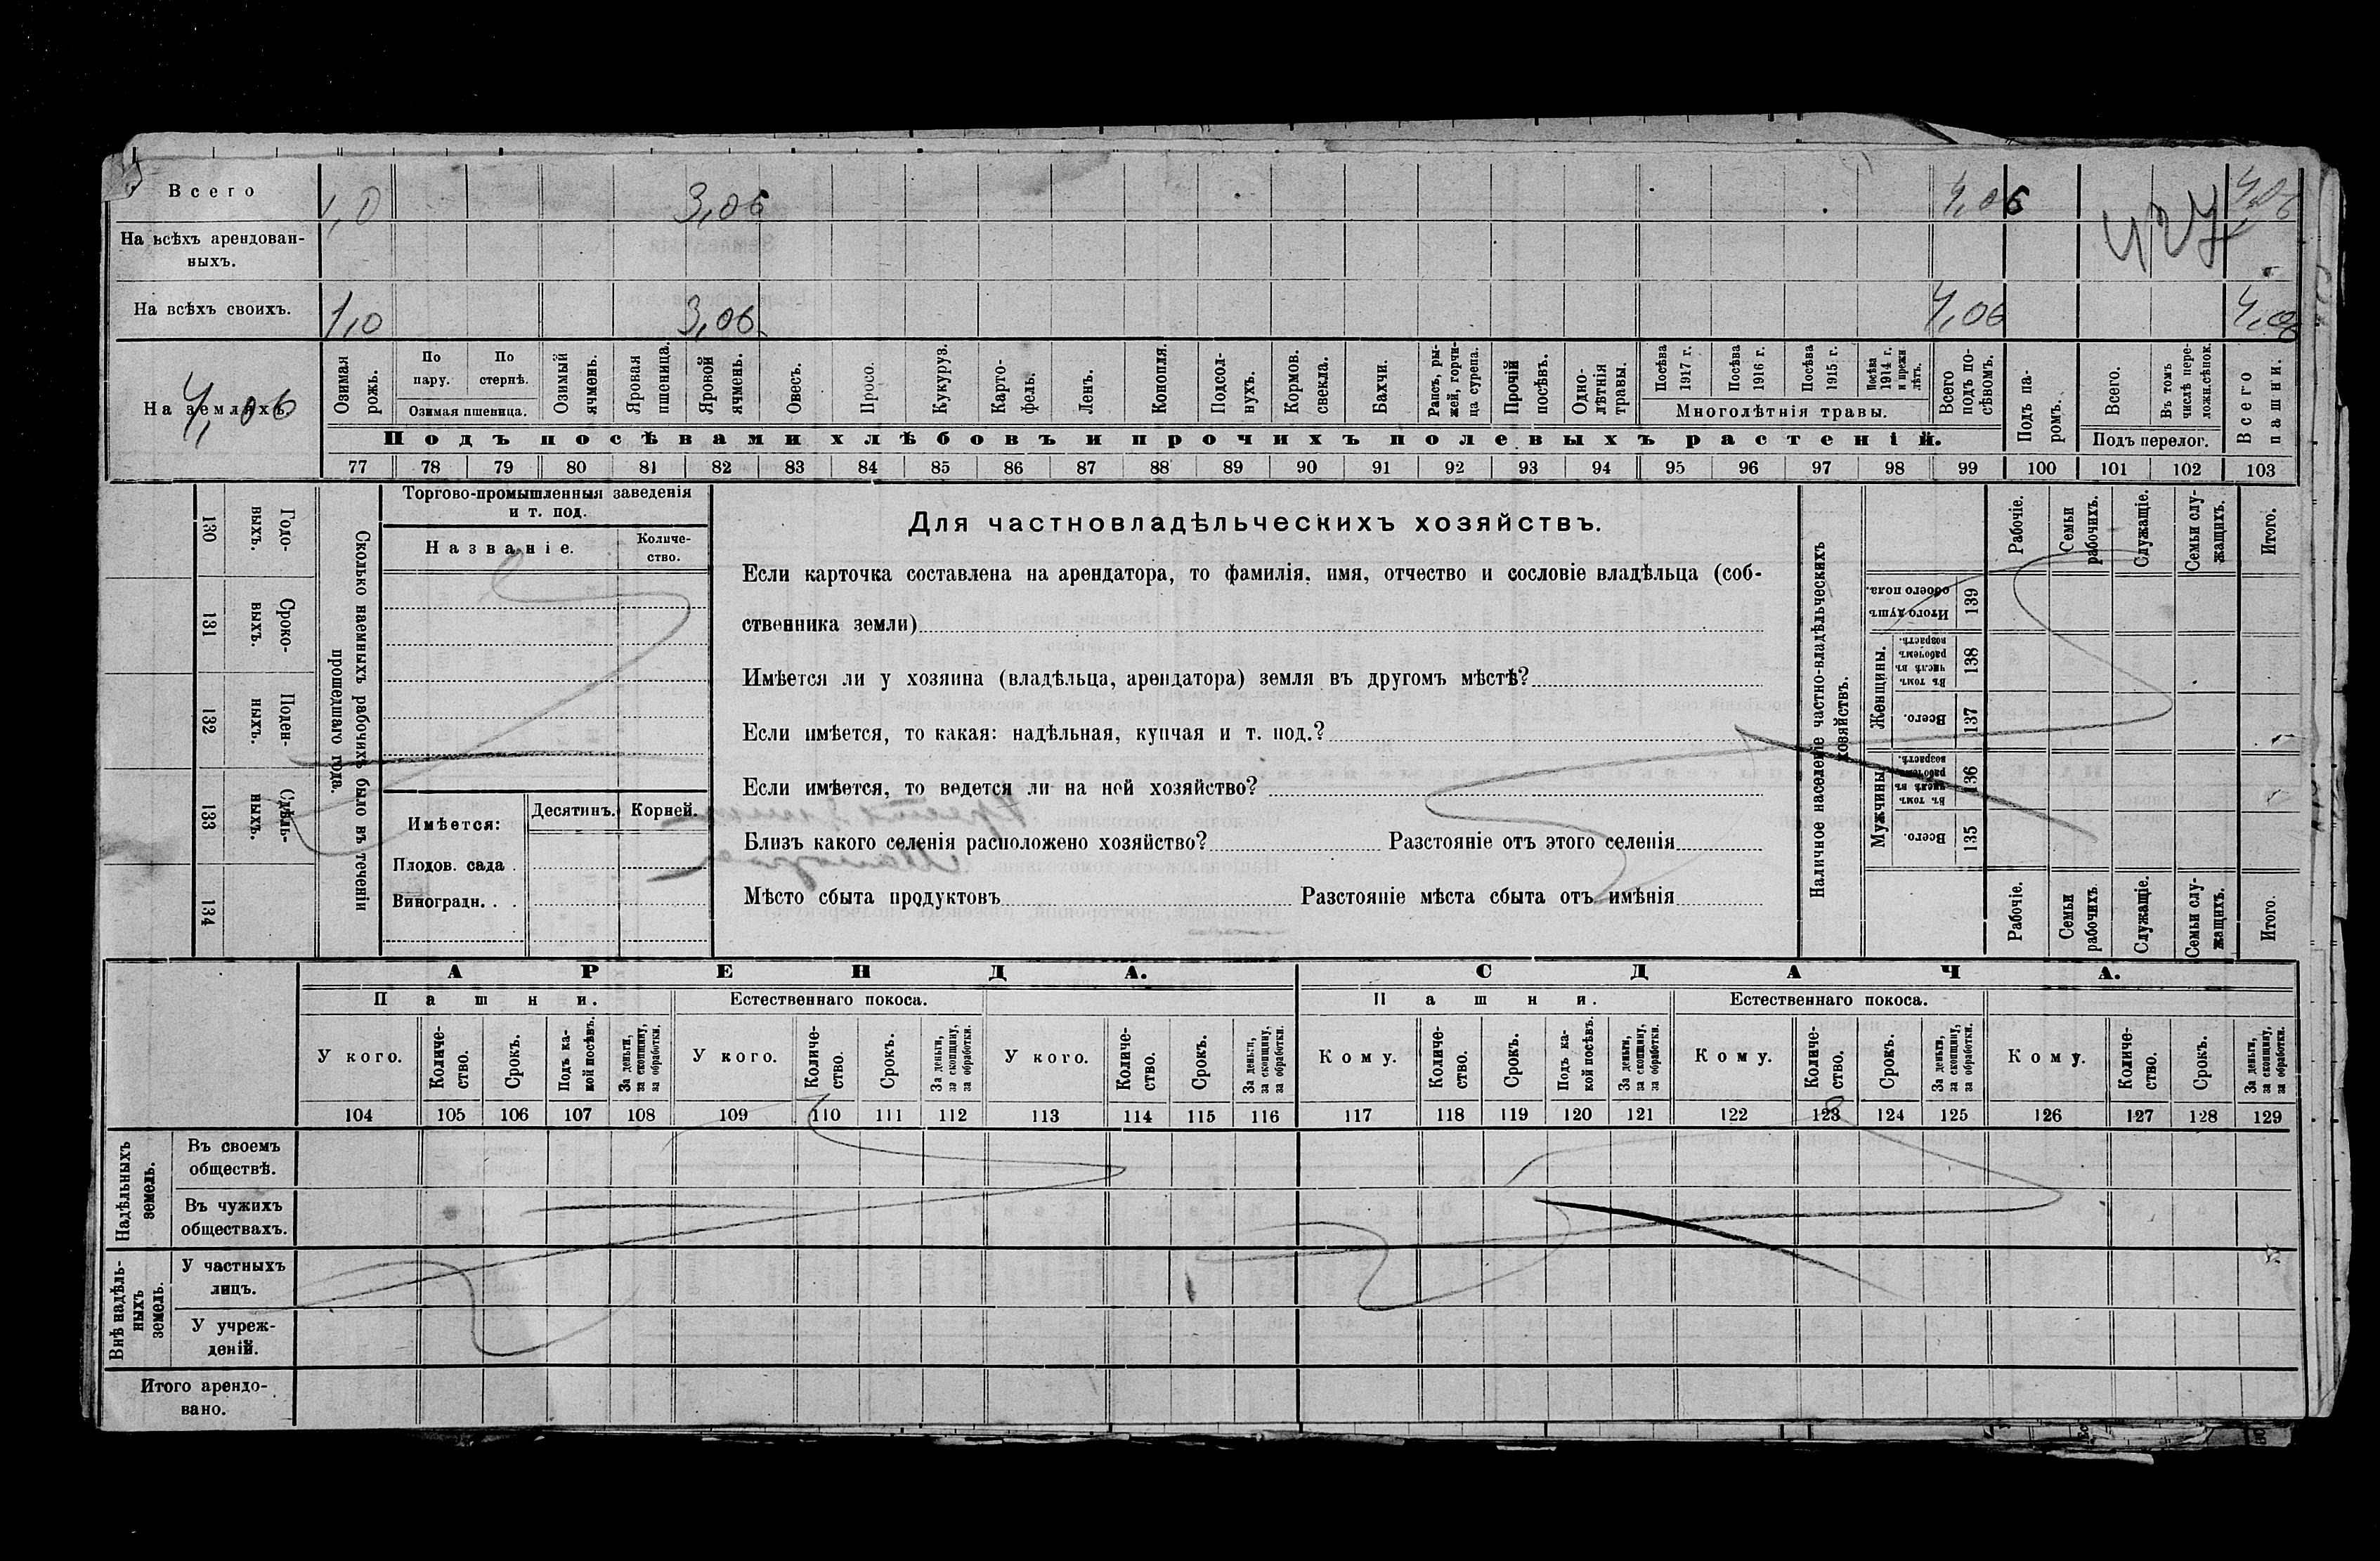 Всего 1,0 3,06 4,06 4,06
427
На всѣхъ арендован-
ныхъ.
На всѣхъ своихъ. 1,0 3,06 4,06 4,06
На земляхъ. 4,06
Озимая рожь.
По пару.
По стернѣ.
Озимая пшеница.
Озимый ячмень.
Яровая пшеница.
Яровой ячмень.
Овесъ.
Просо.
Кукуруз.
Карто-
фель.
Ленъ.
Конопля.
Подсол-
нухъ.
Кормов. свекла.
Бахчи.
Рапсъ, ры-
жей, горчи-
ца сурепа.
Прочій посѣвъ.
Одно-
лѣтнія травы.
Посѣва 1917 г.
Посѣва 1916 г.
Посѣва 1915 г.
Посѣва 1914 г. и прежн лѣтъ.
Многолѣтнія травы.
Всего подъ по-
сѣвомъ.
Подъ па-
ромъ.
Всего.
Въ томъ числѣ пере-
ложн.сѣнок.
Подъ перелог.
Всего пашни.
Подъ посѣвами хлѣбовъ и прочихъ полевыхъ растеній.
77 78 79 80 81 82 83 84 85 86 87 88 89 90 91 92 93 94 95 96 97 98 99 100 101 102 103
130 Годо-
выхъ.
131 Сроко-
выхъ.
132 Поден-
ныхъ.
133 Сдѣль-
ныхъ.
134
Сколько наемныхъ рабочихъ было въ теченіи
прошедшаго года.
Торгово-промышленныя заведенія
и т. под.
Названіе.
Количе-
ство.
Имѣется:
Десятинъ. Корней.
Плодов. сада .
Виноградн. . .
Для частновладѣльческихъ хозяйствъ.
Если карточка составлена на арендатора, то фамилія, имя, отчество и сословіе владѣльца (соб-
ственника земли)
Имѣется ли у хозяина (владѣльца, арендатора) земля въ другомъ мѣстѣ?
Если имѣется, то какая: надѣльная, купчая и т. под.?
Если имѣется, то ведется ли на ней хозяйство?
Близъ какого селенія расположено хозяйство? Разстояніе отъ этого селенія
Мѣсто сбыта продуктовъ Разстояніе мѣста сбыта отъ имѣнія
Наличное населеніе частно-владѣльческихъ
хозяйствъ.
Рабочіе.
Семьи рабочихъ.
Служащіе.
Семьи слу-
жащихъ.
Итого.
Итого душъ обоего пола. 139
Женщины.
Въ томъ числѣ въ рабочемъ возрастѣ. 138
Всего. 137
Мужчины.
Въ томъ числѣ въ рабочемъ возрастѣ. 136
Всего. 135
Рабочіе.
Семьи рабочихъ.
Служащіе.
Семьи слу-
жащихъ.
Итого.
АРЕНДА. СДАЧА.
Пашни. Естественнаго покоса. Пашни. Естественнаго покоса.
У кого.
Количе-
ство.
Срокъ.
Подъ ка-
кой посѣвъ.
За деньги, за скопщину, за обработки.
У кого.
Количе-
ство.
Срокъ.
За деньги, за скопщину, за обработки.
У кого.
Количе-
ство.
Срокъ.
За деньги, за скопщину, за обработки.
Кому.
Количе-
ство.
Срокъ.
Подъ ка-
кой посѣвъ.
За деньги, за скопщину, за обработки.
Кому.
Количе-
ство.
Срокъ.
За деньги, за скопщину, за обработки.
Кому.
Количе-
ство.
Срокъ.
За деньги, за скопщину, за обработки.
104 105 106 107 108 109 110 111 112 113 114 115 116 117 118 119 120 121 122 123 124 125 126 127 128 129
Надѣльныхъ земель.
Въ своемъ
обществѣ.
Въ чужихъ
обществахъ.
Внѣ надѣль-
ныхъ земель.
У частныхъ
лицъ.
У учреж-
деній.
Итого арендо-
вано.